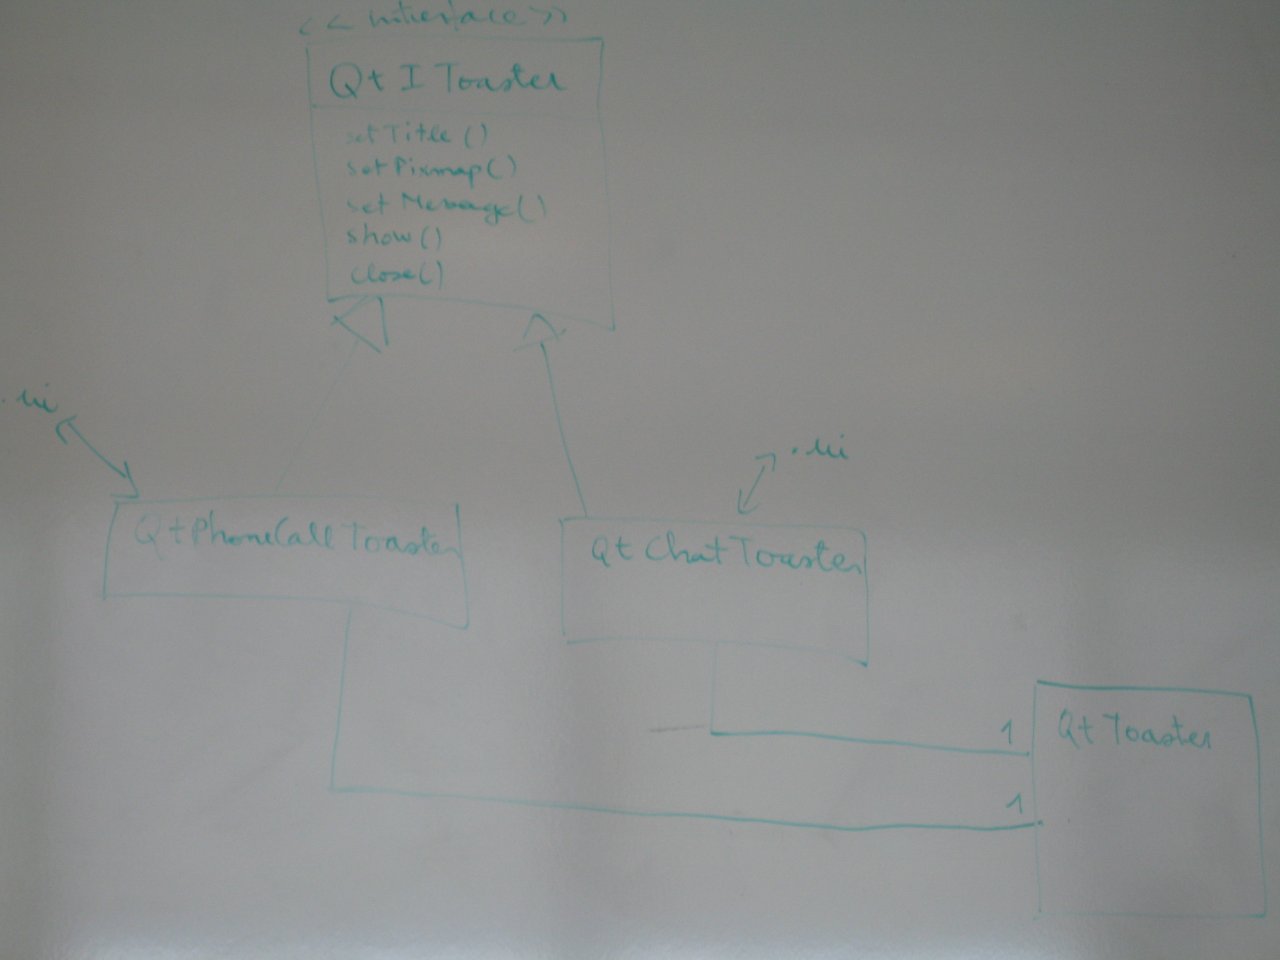 <<interface>>
QtIToaster
setTitle()
setPixmap()
setMessage()
show()
close()
.ui
.ui
QtPhoneCallToaster
QtChatToaster
1
QtToaster
1